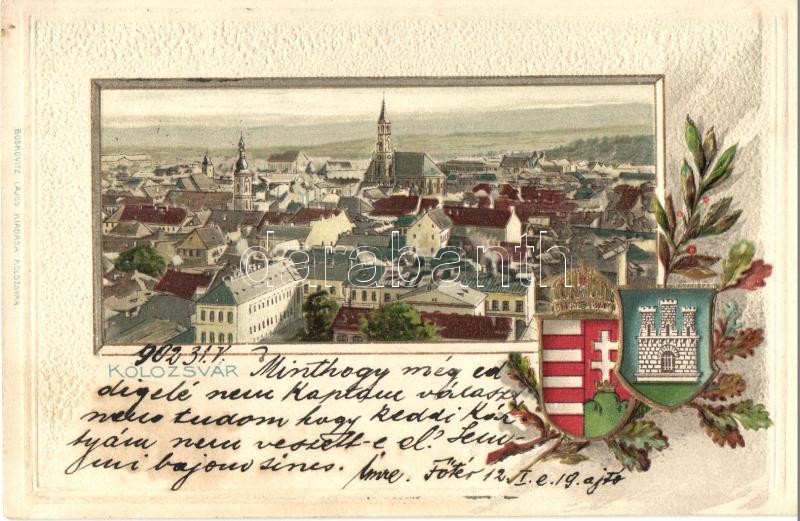 BOSKOVITZ LAJOS KIADÁSA KOLOZSVÁR
darabanth
KOLOZSVÁR
902 31./V.
Minthogy még ed
digelé nem kaptam választ
nem tudom hogy keddi kár
tyám nem veszett-e el? Sem-
mi bajom sincs. Imre. Főtér 12. I. e. 19. ajtó